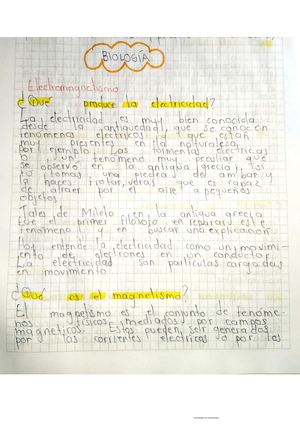 BIOLOGÍA
Electromagnetismo
¿Qué produce la electricidad?
La electricidad es muy bien conocida
desde la antiguedad, que se conocen
fenomenos electricos y que están
muy presentes en la naturaleza,
por ejemplo, Las tormentas electricas
o un fenomeno muy peculiar que
se observó en la antigua grecia, "si
tu tomas, una piedra de ambar y
la haces frotar, veras que es capaz
de atraer por el aire a pequeños
objetos.
Tales de Mileto, en la antigua grecia
fue el primer filosofo en registrar este
fenomeno y en buscar una explicación
Hoy entiende la electricidad como un movimi-
ento de electrones en un conductor
La electricidad son particulas cargadas
en movimiento
¿Qué es el magnetismo?
El magnetismo es el conjunto de fenóme-
nos fisicos mediados por campos
magneticos. Estos pueden ser generados
por las corrientes electricas o por los